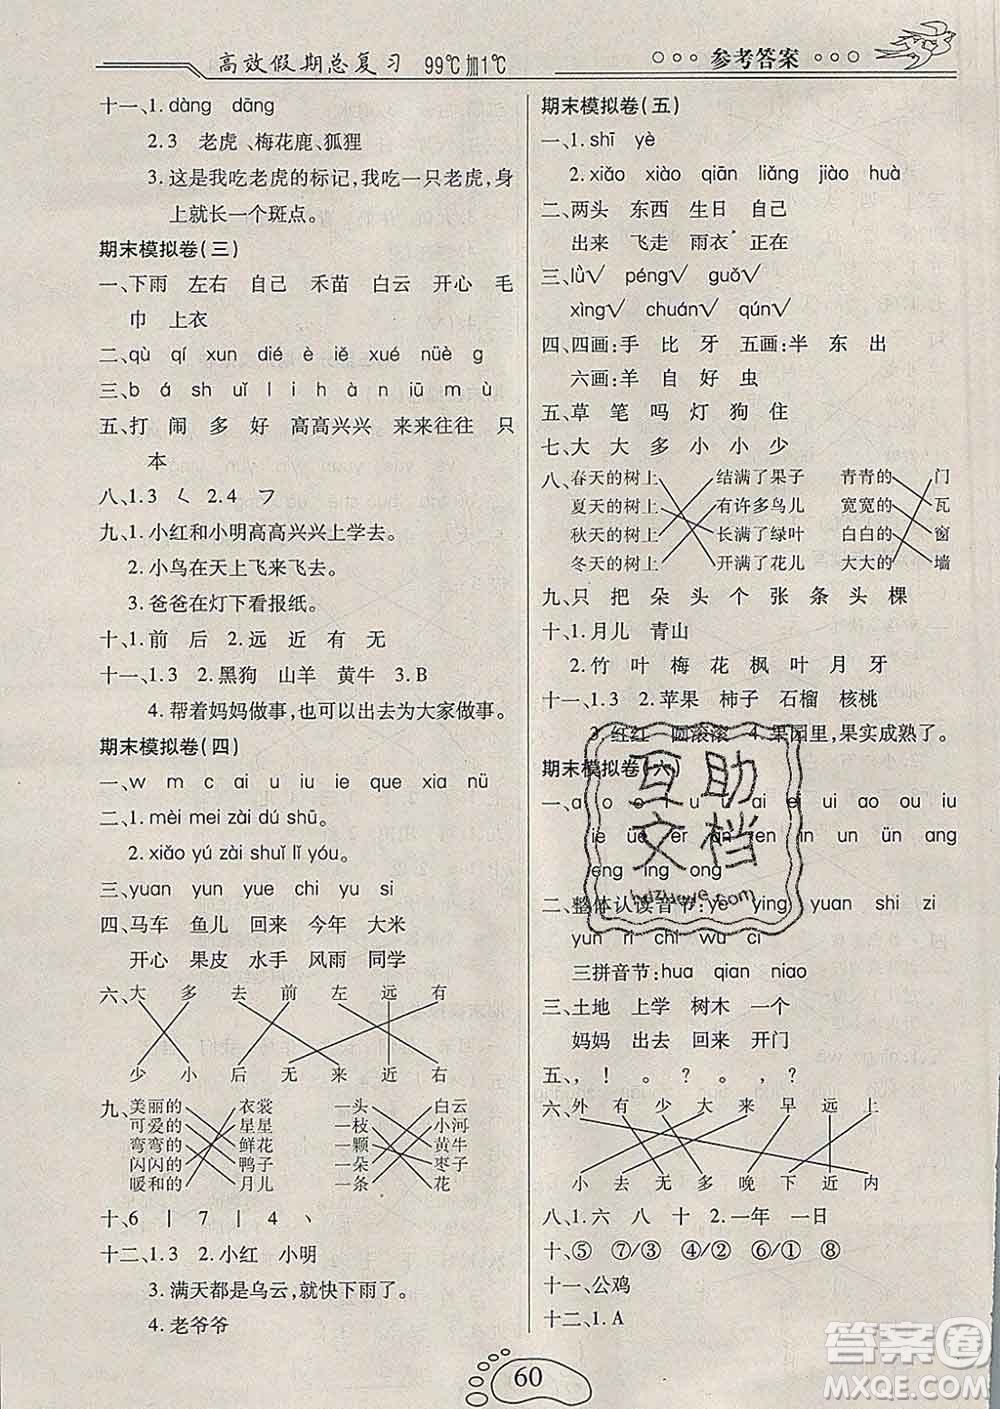 高效假期总复习 99℃加1℃
参考答案
十一、1. dàng dāng
2. 3 老虎、梅花鹿、狐狸
3. 这是我吃老虎的标记,我吃一只老虎,身
上就长一个斑点。
期末模拟卷(三)
一、下雨 左右 自己 禾苗 白云 开心 毛
巾 上衣
二、qù qí xun dié è iě xué nüè g
三、b á sh uǐ l i h à n iū m ù
五、打 闹 多 好 高高兴兴 来来往往 只
本
八、1. 3 ㄑ 2. 4 フ
九、1. 小红和小明高高兴兴上学去。
2. 小鸟在天上飞来飞去。
3. 爸爸在灯下看报纸。
十、1. 前 后 2. 远 近 有 无
十一、1. 3 2. 黑狗 山羊 黄牛 3. B
4. 帮着妈妈做事,也可以出去为大家做事。
期末模拟卷(四)
一、w m c ai u iu ie que xia nü
二、1. mèi mei zài dú shū。
2. xiǎo yú zài shuǐ lǐ yóu。
三、yuan yun yue chi yu si
四、马车 鱼儿 回来 今年 大米
开心 果皮 水手 风雨 同学
六、大 多 去 前 左 远 有
少 小 后 无 来 近 右
九、美丽的 衣裳 一头 白云
可爱的 星星 一枝 小河
弯弯的 鲜花 一颗 黄牛
闪闪的 鸭子 一朵 枣子
暖和的 月儿 一条 花
十、6 丨 7 丨 4 丶
十二、1. 3 2. 小红 小明
3. 满天都是乌云,就快下雨了。
4. 老爷爷
期末模拟卷(五)
一、1. shī yè
2. xiǎo xiào qiān liǎng jiào huà
二、两头 东西 生日 自己
出来 飞走 雨衣 正在
三、lǜ√ péng√ guǒ√
xìng√ chuán√ qún√
四、四画:手 比 牙 五画:半 东 出
六画:羊 自 好 虫
五、草 笔 吗 灯 狗 住
七、大 大 多 小 小 少
八、春天的树上 结满了果子 青青的 门
夏天的树上 有许多鸟儿 宽宽的 瓦
秋天的树上 长满了绿叶 白白的 窗
冬天的树上 开满了花儿 大大的 墙
九、只 把 朵 头 个 张 条 头 棵
十、1. 月儿 青山
2. 竹 叶 梅 花 枫 叶 月 牙
十一、1. 3 2. 苹果 柿子 石榴 核桃
3. 红红 圆滚滚 4. 果园里,果实成熟了。
期末模拟卷(六)
一、a o e i u ü ai ei ui ao ou iu
ie üe er an en in un ün ang
eng ing ong
二、整体认读音节:ye ying yuan shi zi
yun ri chi wu ci
三拼音节:hua qian niao
三、土地 上学 树木 一个
妈妈 出去 回来 开门
五、, ! 。 ? 。 !
六、外 有 少 大 来 早 远 上
小 去 无 多 晚 下 近 内
八、1. 六 八 十 2. 一年 一日
十、⑤ ⑦/③ ④/② ⑥/① ⑧
十一、公鸡
十二、1. A
互助文档
hdzuoye.com
60
答案圈
MXQE.COM